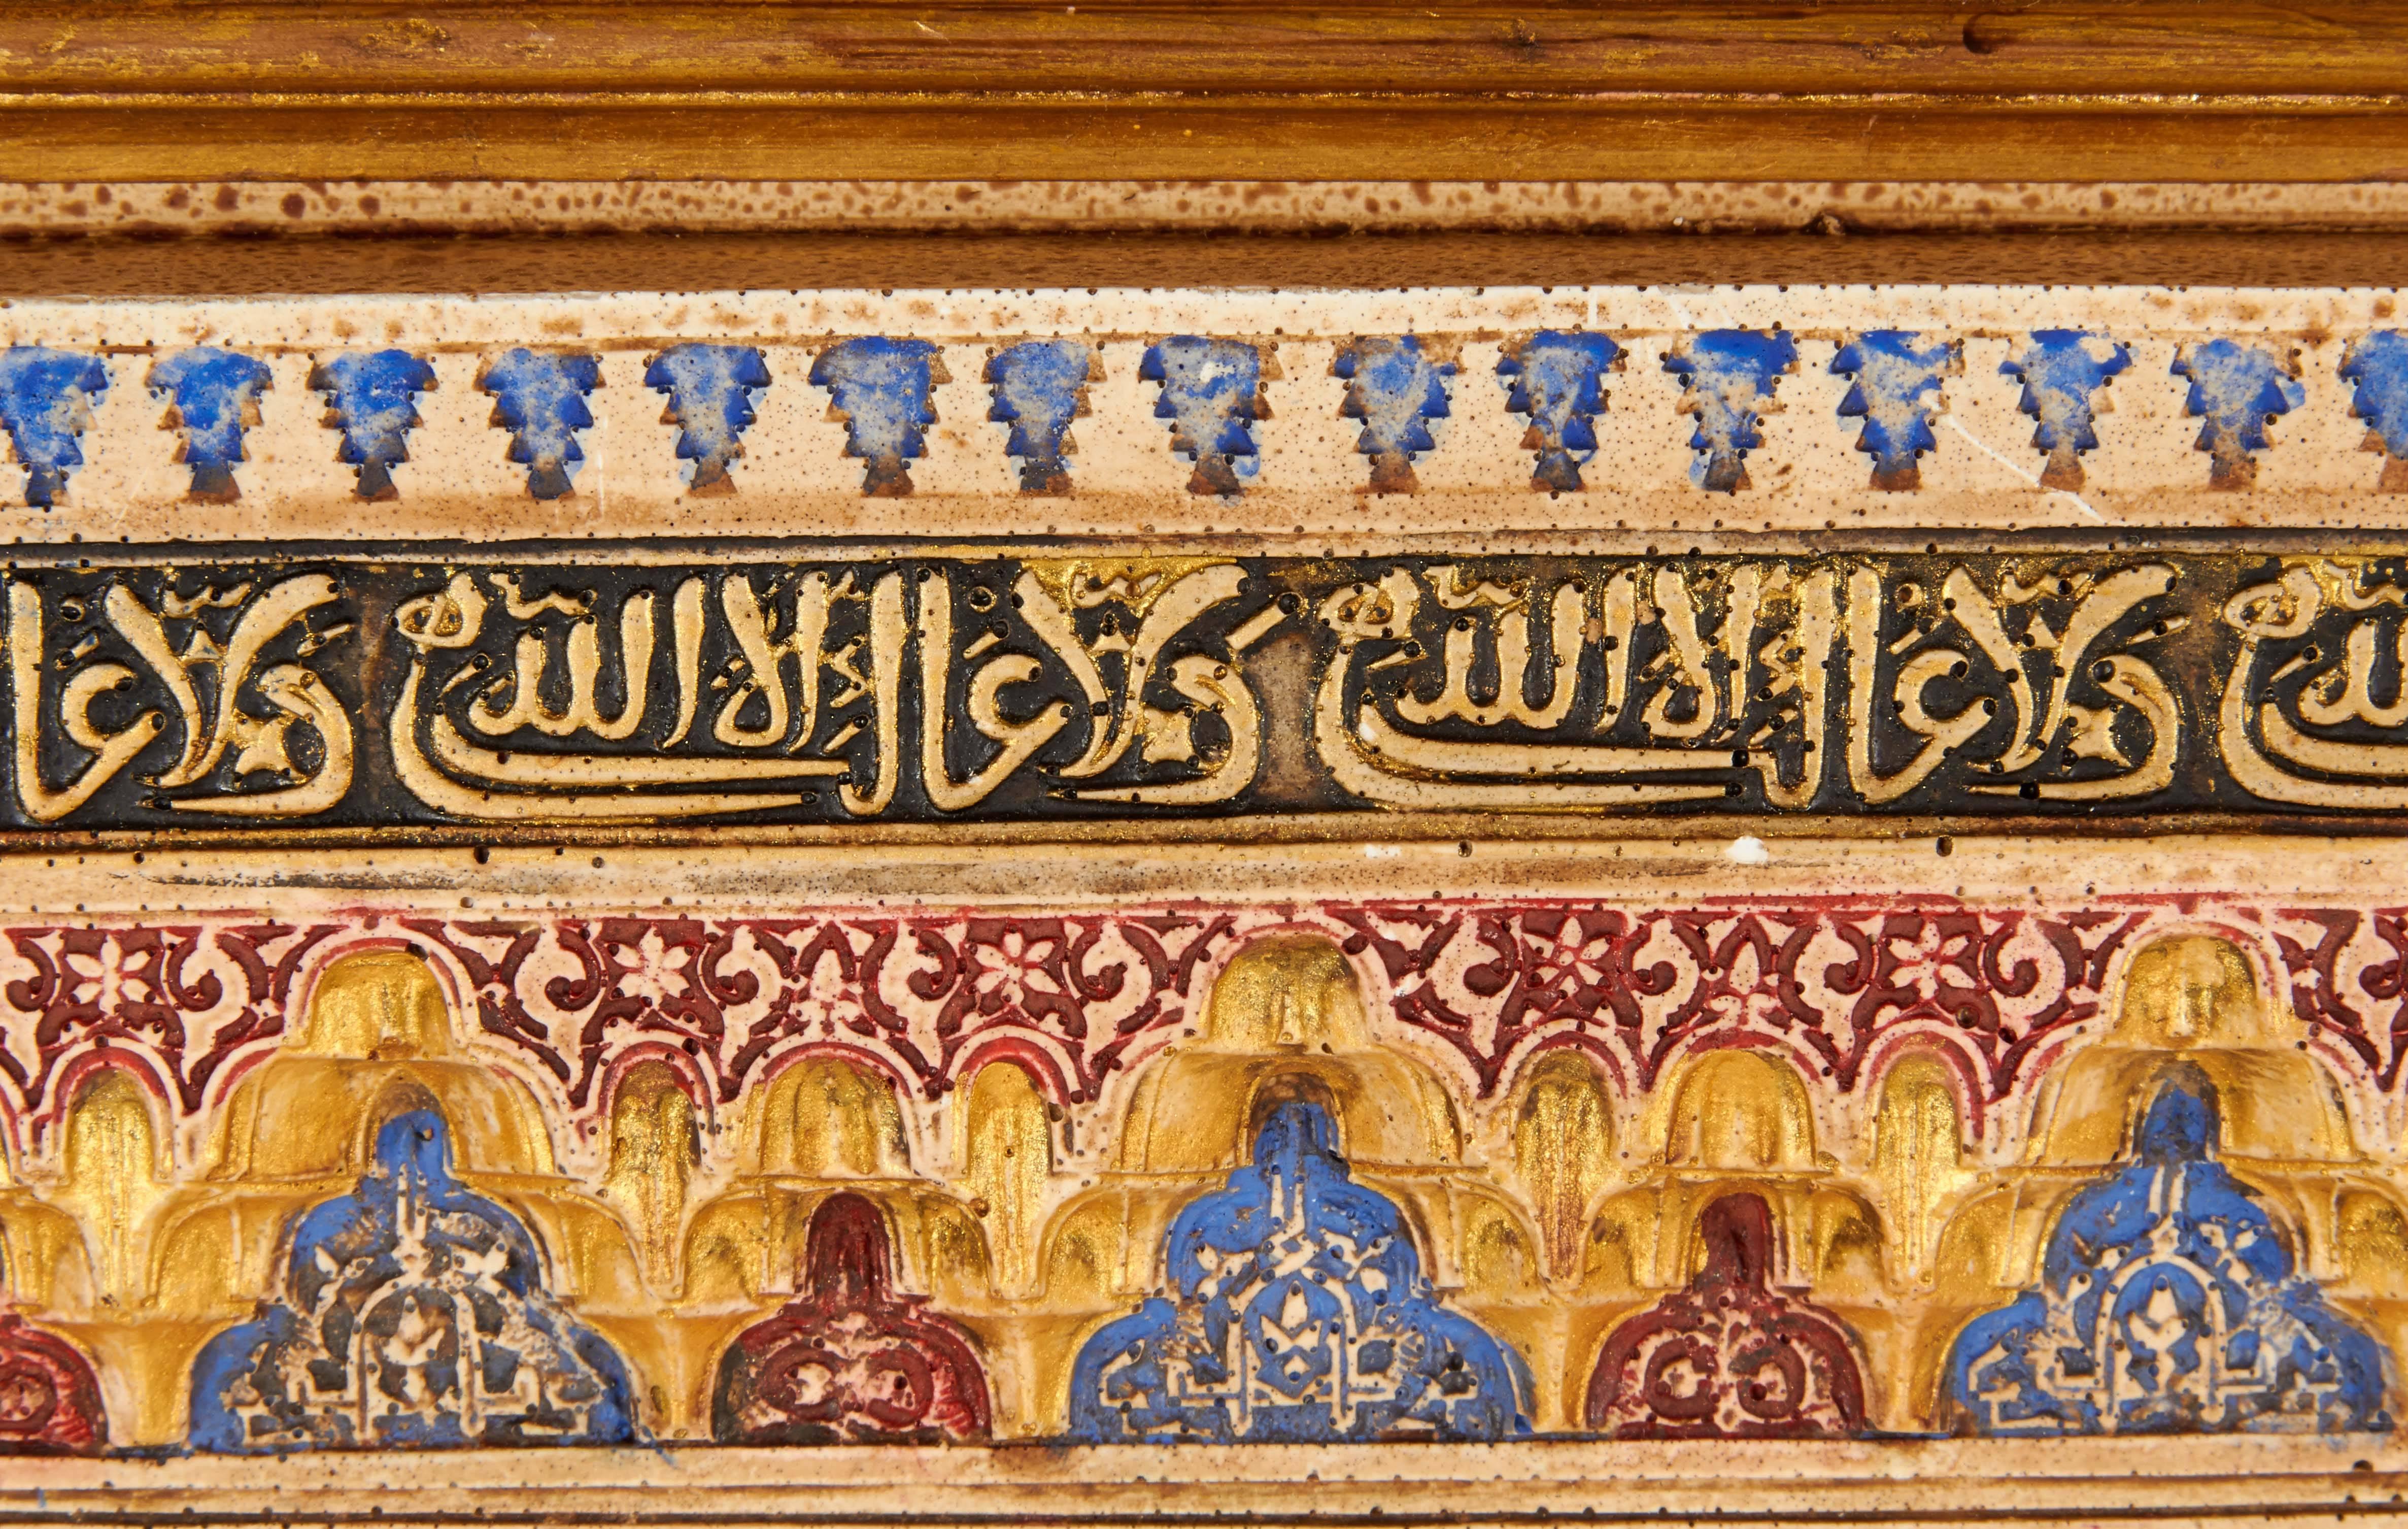 ولا غالب إلا الله ولا غالب إلا الله ولا غا